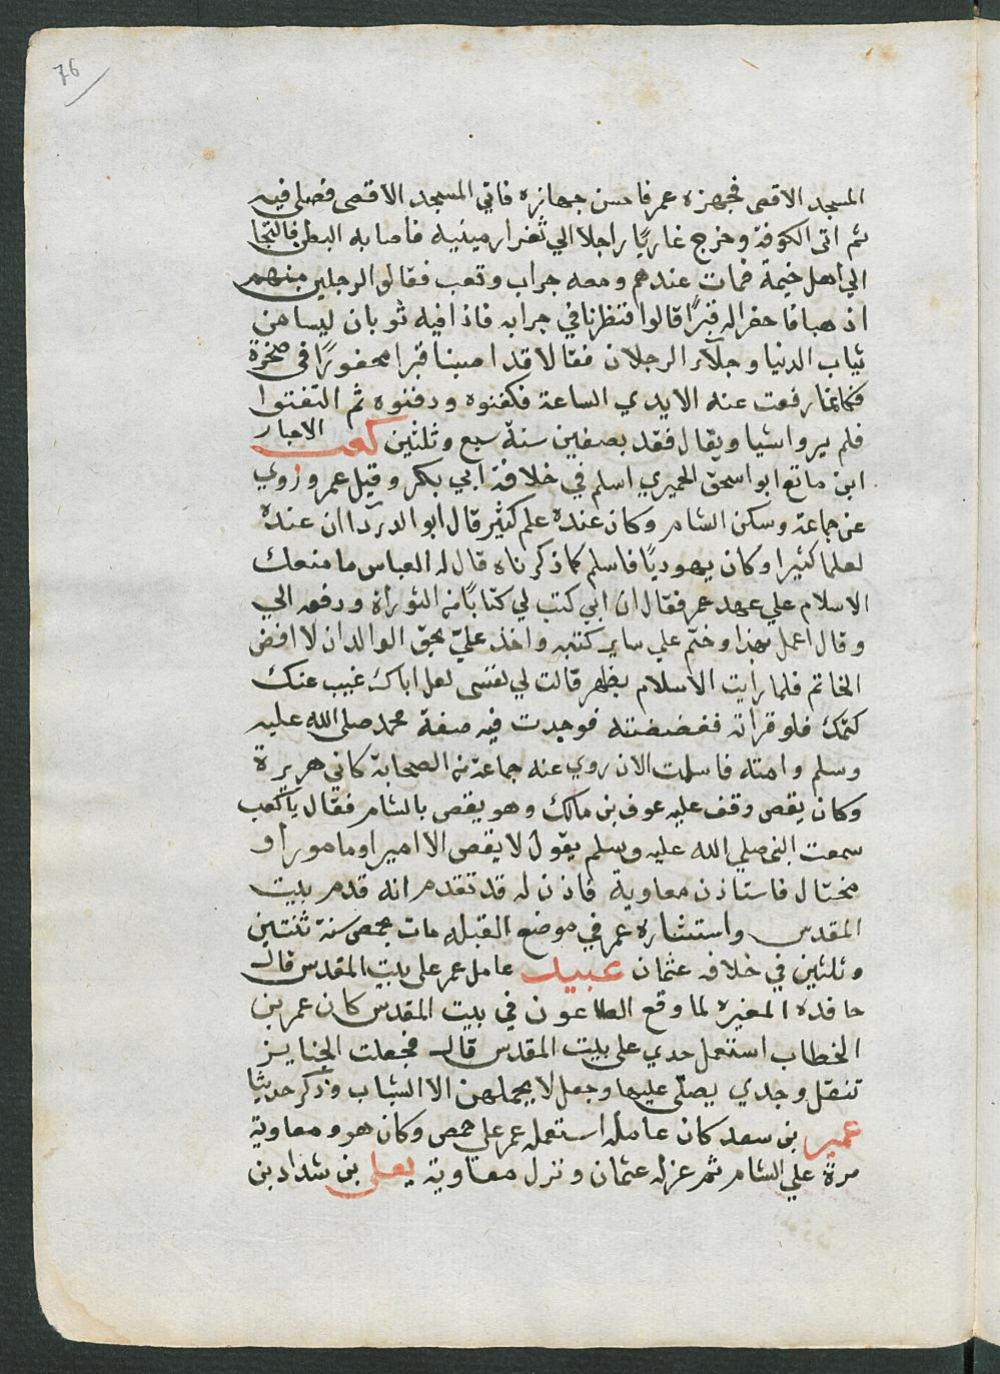 76
المسجد الاقصى فجهزه عمر فاحسن جهازه فاتي المسجد الاقصى فصلى فيه
ثم اتى الكوفة وخرج غازيًا راجلا الي ثغر ارمينيه فاصابه البطن فالتجا
الي اهل خيمة فمات عندهم ومعه جراب وقعب فقالوا لرجلين منهم
اذهبا فاحفرا له قبرًا قالوا فنظرنا في جرابه فاذا فيه ثوبان ليسا من
ثياب الدنيا وجآء الرجلان فقالا قد اصبنا قبرا محفورًا في صخرة
فكانما رفعت عنه الايدي الساعة فكفنوه ودفنوه ثم التفتوا
فلم يروا شيا ويقال فقد بصفين سنة سبع وثلثين كعب الاحبار
ابن ماتع ابو اسحق الحميري اسلم في خلافة ابي بكر وقيل عمر وروي
عن جماعة وسكن الشام وكان عنده علم كثير قال ابو الدردآ ان عنده
لعلما كثيرا وكان يهوديًا فاسلم كما ذكرناه قال له العباس ما منعك
الاسلام علي عهد عمر فقال ان ابي كتب لي كتابًا من التوراة ودفعه الي
وقال اعمل بهذا وختم علي ساير كتبه واخذ عليّ بحق الوالد ان لا افض
الخاتم فلما رايت الاسلام يظهر قالت لي نفسى لعل اباك غيب عنك
كتمك فلو قراته ففضضته فوجدت فيه صفة محمد صلى الله عليه
وسلم وامته فاسلمت الان روي عنه جماعة من الصحابة كابي هريرة
وكان يقص وقف عليه عوف بن مالك وهو يقص بالشام فقال يا كعب
سمعت النبي صلي الله عليه وسلم يقول لا يقص الا امير او مامور او
مختال فاستاذن معاوية فاذن له قد تقدم انه قدم بيت
المقدس واستشاره عمر في موضع القبله مات بحمص سنة ثنتين
وثلثين في خلافه عثمان عبيد عامل عمر على بيت المقدس قال
حافده المغيره لما وقع الطاعون في بيت المقدس كان عمر بن
الخطاب استعمل جدي على بيت المقدس قال فجعلت الجنايز
تنقل وجدي يصلّى عليها وجعل لا يحملهن الا الشباب وذكر حديثا
عمير بن سعد كان عاملا استعمله عمر علي حمص وكان هو ومعاوية
مرة علي الشام ثم عزله عثمان ونزل معاوية يعلى بن شداد بن